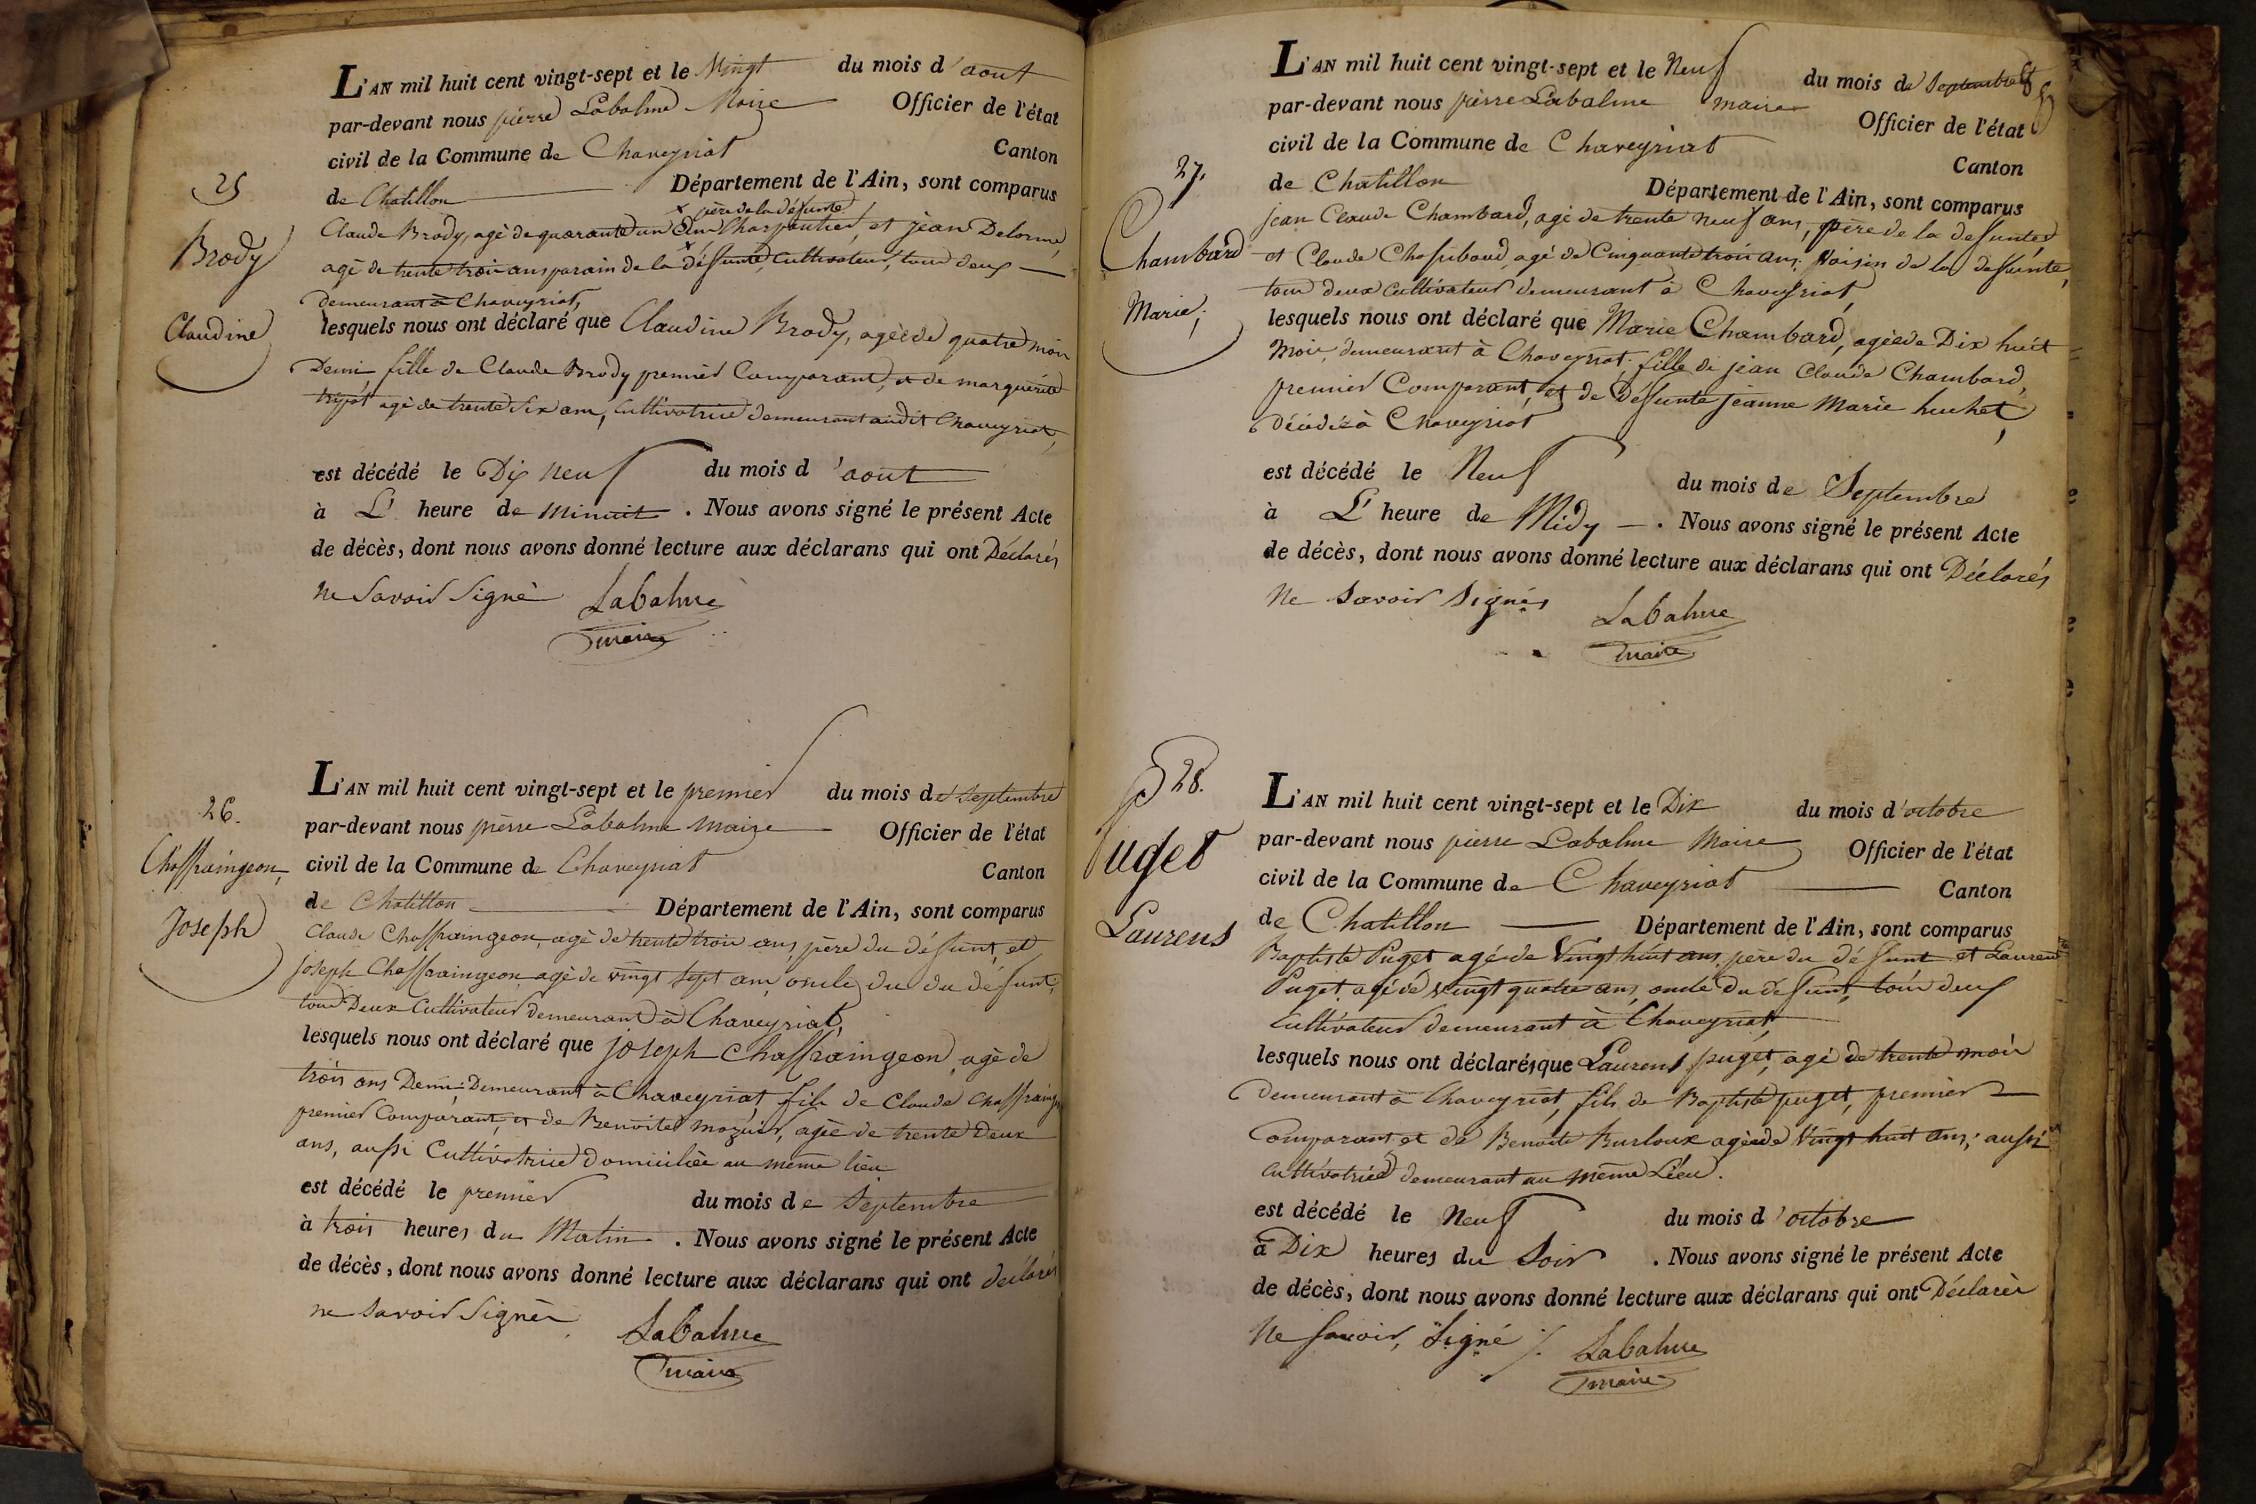 25
Brody
Claudine
L'AN mil huit cent vingt-sept et le Vingt du mois d'aout
par-devant nous pierre Labalme Maire Officier de l'état
civil de la Commune de Chaveyriat Canton
de Chatillon Département de l'Ain, sont comparus
x père de la défunte
Claude Brody, agé de quarante un ans Charpentier, et jean Delorme,
agé de trente trois ans parain de la défunte, cultivateur, tous deux
demeurant à Chaveyriat,
lesquels nous ont déclaré que Claudine Brody, agéede quatre mois
Demi fille de Claude Brody premier Comparant, et de marguerite
agé de trente six ans, Cultivatrice demeurant audit Chaveyriat,
est décédé le Dix neuf du mois d'aout
à L' heure de Minuit . Nous avons signé le présent Acte
de décès, dont nous avons donné lecture aux déclarans qui ont Déclarés
ne Savoir Signé Labalme
maire
26.
Chaffraingeon,
Joseph
L'AN mil huit cent vingt-sept et le premier du mois de Septembre
par-devant nous pierre Labalme maire Officier de l'état
civil de la Commune de Chaveyriat Canton
de Chatillon Département de l'Ain, sont comparus
Claude Chaffraingeon, agé de trente trois ans, père du défunt, et
joseph Chaffraingeon agé de vingt sept ans, oncle du du défunt,
tous Deux Cultivateur demeurant à Chaveyriat,
lesquels nous ont déclaré que joseph Chaffraingeon, agé de
trois ans Demi Demeurant à Chaveyriat, fils de Claude Chaffraing
premier Comparant, et de Benoite agée de trente Deux
ans, aussi Cultivatrice Domiciliée au même lieu
est décédé le premier du mois de Septembre
à trois heures du Matin . Nous avons signé le présent Acte
de décès, dont nous avons donné lecture aux déclarans qui ont déclarés
ne Savoir Signér Labalme
maire
27.
Chambard
Marie,
L'AN mil huit cent vingt-sept et le Neuf du mois de Septembre
par-devant nous pierre Labalme maire Officier de l'état
civil de la Commune de Chaveyriat Canton
de Chatillon Département de l'Ain, sont comparus
jean Claude Chambard, agé de trente neuf ans, père de la defunte,
et Claude agé de Cinquante trois ans, Voisin de la defunte,
tous deux Cultivateur demeurant à Chaveyriat,
lesquels nous ont déclaré que Marie Chambard, agéede Dix huit
Mois, demeurant à Chaveyriat, fille de jean Claude Chambard,
premier Comparant, et de Défunte jeanne Marie huchet,
Décédéz à Chaveyriat
est décédé le Neuf du mois de Septembre
à L' heure de Midy . Nous avons signé le présent Acte
de décès, dont nous avons donné lecture aux déclarans qui ont Déclarés
Ne Savoir Signés Labalme
maire
28.
Puget
Laurens
L'AN mil huit cent vingt-sept et le Dix du mois d'octobre
par-devant nous pierre Labalme Maire Officier de l'état
civil de la Commune de Chaveyriat Canton
de Chatillon Département de l'Ain, sont comparus
Baptiste Puget agé de Vingt huit ans, père du défunt et Laurent
Puget, agé de vingt quatre ans, oncle du défunt, tous deux
Cultivateur demeurant à Chaveyriat,
lesquels nous ont déclarés que Laurens puget, agé de trente mois
demeurant à Chaveyriat, fils de Baptiste puget, premier
Comparant et de Benoite Burloux agéede Vingt huit ans, aussi
cultivatrice demeurant au même Lieu.
est décédé le Neuf du mois d'octobre
à Dix heures du Soir . Nous avons signé le présent Acte
de décès, dont nous avons donné lecture aux déclarans qui ont Déclarér
Ne Savoir, Signé /. Labalme
maire